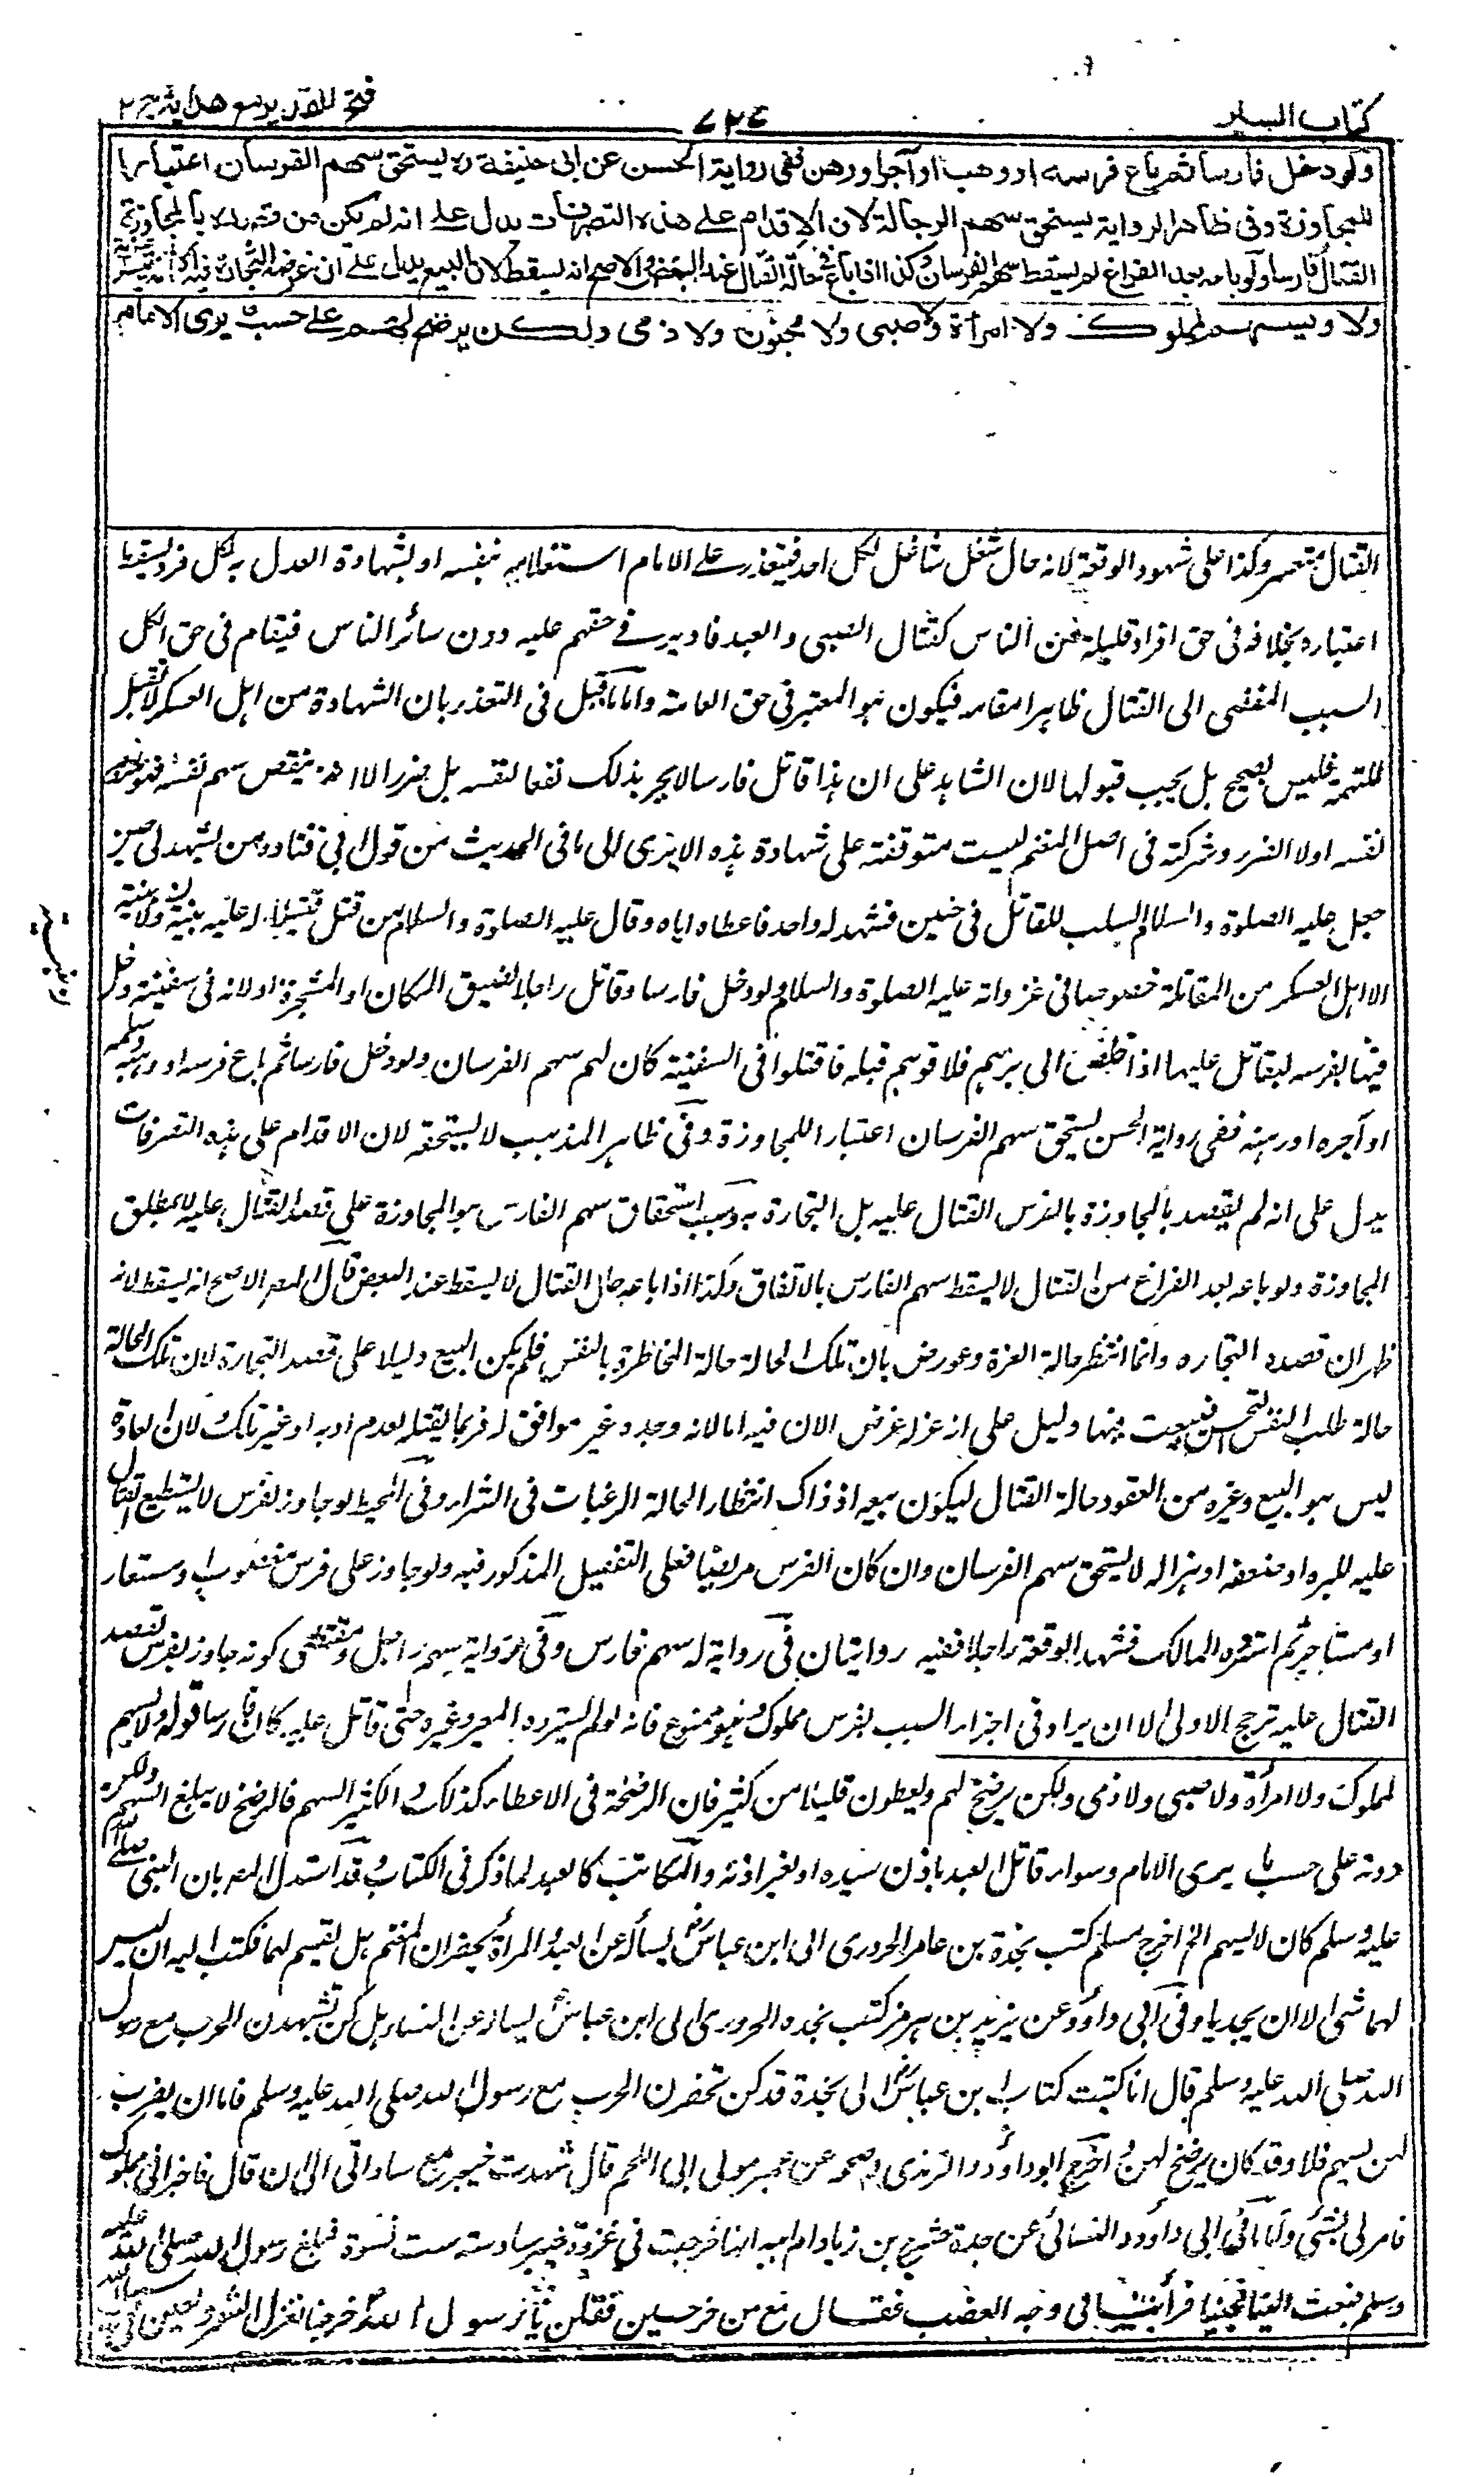 كتاب السير
٧٢٤
فتح القدير مع هداية ج ٢
ولو دخل فارسا ثم باع فرسه او وهب او آجر او رهن ففي رواية الحسن عن ابى حنيفة ره يستحق سهم الفرسان اعتبارا
للمجاوزة وفى ظاهر الرواية يستحق سهم الرجالة لان الاقدام على هذه التصرفات يدل على انه لم يكن من قصده بالمجاوزة
القتال فارسا ولو باعه بعد الفراغ لم يسقط سهم الفرسان وكذا اذا باع في حالة القتال عند البعض والاصح انه يسقط لان البيع يدل على ان غرضه التجارة فيه الا انه ينتظر عزته
ولا يسهم لمملوك ولا امرأة ولا صبى ولا مجنون ولا ذمى ولكن يرضخ لهم على حسب ما يرى الامام
القتال متعسر وكذا على شهود الوقعة لانه حال شغل شاغل لكل احد فيتعذر على الامام استعلامه بنفسه او بشهادة العدل به لكل فرد ليسقط
اعتباره بخلافه فى حق افراد قليلة من الناس كقتال الصبى والعبد فادير فى حقهم عليه دون سائر الناس فيقام فى حق الكل
السبب المفضى الى القتال ظاهرا مقامه فيكون هو المعتبر فى حق العامة واما ما قيل فى التعذر بان الشهادة من اهل العسكر لا تقبل
للتهمة فليس بصحيح بل يجب قبولها لان الشاهد على ان هذا قاتل فارسا لا يجر بذلك نفعا لنفسه بل ضررا لا انه ينقص سهم نفسه
لنفسه او لا الضرر وشركته فى اصل المغنم ليست متوقفة على شهادة هذه الا يرى الى ما فى الحديث من قول ابى قتادة من يشهد لى حين
جعل عليه الصلوة والسلام السلب للقاتل فى حنين فشهد له واحد فاعطاه اياه وقال عليه الصلوة والسلام من قتل قتيلا له عليه بينة ولا بينة
الا اهل العسكر من المقاتلة خصوصا فى غزواته عليه الصلوة والسلام ولو دخل فارسا وقاتل راجلا لضيق المكان او المشجرة او لانه فى سفينة دخل
فيها بفرسه ليقاتل عليها اذا خلص الى برهم فلاقوهم قبله فاقتتلوا فى السفينة كان لهم سهم الفرسان ولو دخل فارسا ثم باع فرسه او وهبه وسلمه
او آجره او رهنه ففى رواية الحسن يستحق سهم الفرسان اعتبارا للمجاوزة وفى ظاهر المذهب لا يستحقه لان الاقدام على هذه التصرفات
يدل على انه لم يقصد بالمجاوزة بالفرس القتال عليه بل التجارة به وسبب استحقاق سهم الفارس هو المجاوزة على قصد القتال عليه لا مطلق
المجاوزة ولو باعه بعد الفراغ من القتال لا يسقط سهم الفارس بالاتفاق وكذا اذا باعه حال القتال لا يسقط عند البعض قال المص الاصح انه يسقط لانه
ظهر ان قصده التجارة وانما انتظر حالة العزة وعورض بان تلك الحالة حالة المخاطرة بالنفس فلم يكن البيع دليلا على قصد التجارة لان تلك الحالة
حالة طلب النفس فبيعه فيها دليل على انه عن له غرض الان فيه اما لانه وجده غير موافق له فربما يقتله لعدم ادبه او غير ذلك لان العادة
ليس هو البيع وغيره من العقود حالة القتال ليكون بيعه اذ ذاك انتظار الحالة الرغبات فى الشراء وفى المحيط لو جاوز بفرس لا يستطيع القتال
عليه لكبره او ضعفه او هزاله لا يستحق سهم الفرسان وان كان الفرس مريضا فعلى التفصيل المذكور فيه ولو جاوز على فرس مغصوب او مستعار
او مستاجر ثم استرده المالك فشهد الوقعة راجلا ففيه روايتان فى رواية له سهم فارس وفى رواية سهم راجل ومقتضى كونه جاوز بفرس لقصد
القتال عليه ترجح الاولى الا ان يراد فى اجزاء السبب بفرس مملوك وهو ممنوع فانه لو لم يسترده المعير وغيره حتى قاتل عليه كان فارسا قوله ولا يسهم
لمملوك ولا امرأة ولا صبى ولا ذمى ولكن يرضخ لهم ويعطون قليلا من كثير فان الرضخة فى الاعطاء كذلك والكثير السهم فالرضخ لا يبلغ السهم ولكن
دونه على حسب ما يرى الامام وسواء قاتل العبد باذن سيده او بغير اذنه والمكاتب كالعبد لما ذكر فى الكتاب وقد استدل المص بان النبى صلى الله
عليه وسلم كان لا يسهم الخ اخرج مسلم كتب نجدة بن عامر الحرورى الى ابن عباس يسأله عن العبد والمرأة يحضران المغنم هل يقسم لهما فكتب اليه ان ليس
لهما شئ الا ان يحذيا وفى ابى داود عن يزيد بن هرمز كتب نجده الحرورى الى ابن عباس يسأله عن النساء هل كن تشهدن الحرب مع رسول
الله صلى الله عليه وسلم قال انا كتبت كتاب ابن عباس الى نجدة قد كن تحضرن الحرب مع رسول الله صلى الله عليه وسلم فاما ان يضرب
لهن بسهم فلا وقد كان يرضخ لهن اخرج ابو داود والترمذى وصححه عن عمير مولى ابى اللحم قال شهدت خيبر مع ساداتى الى ان قال فاخبر انى مملوك
فامر لى بشئ واما ما فى ابى داود والنسائى عن جدة حشرج بن زياد ام ابيه انها خرجت فى غزوة خيبر سادسة ست نسوة فبلغ رسول الله صلى الله عليه
وسلم فبعث الينا فجئنا فرأينا فى وجه الغضب فقال مع من خرجتن فقلن يا رسول الله خرجنا نغزل الشعر ونعين فى سبيل الله